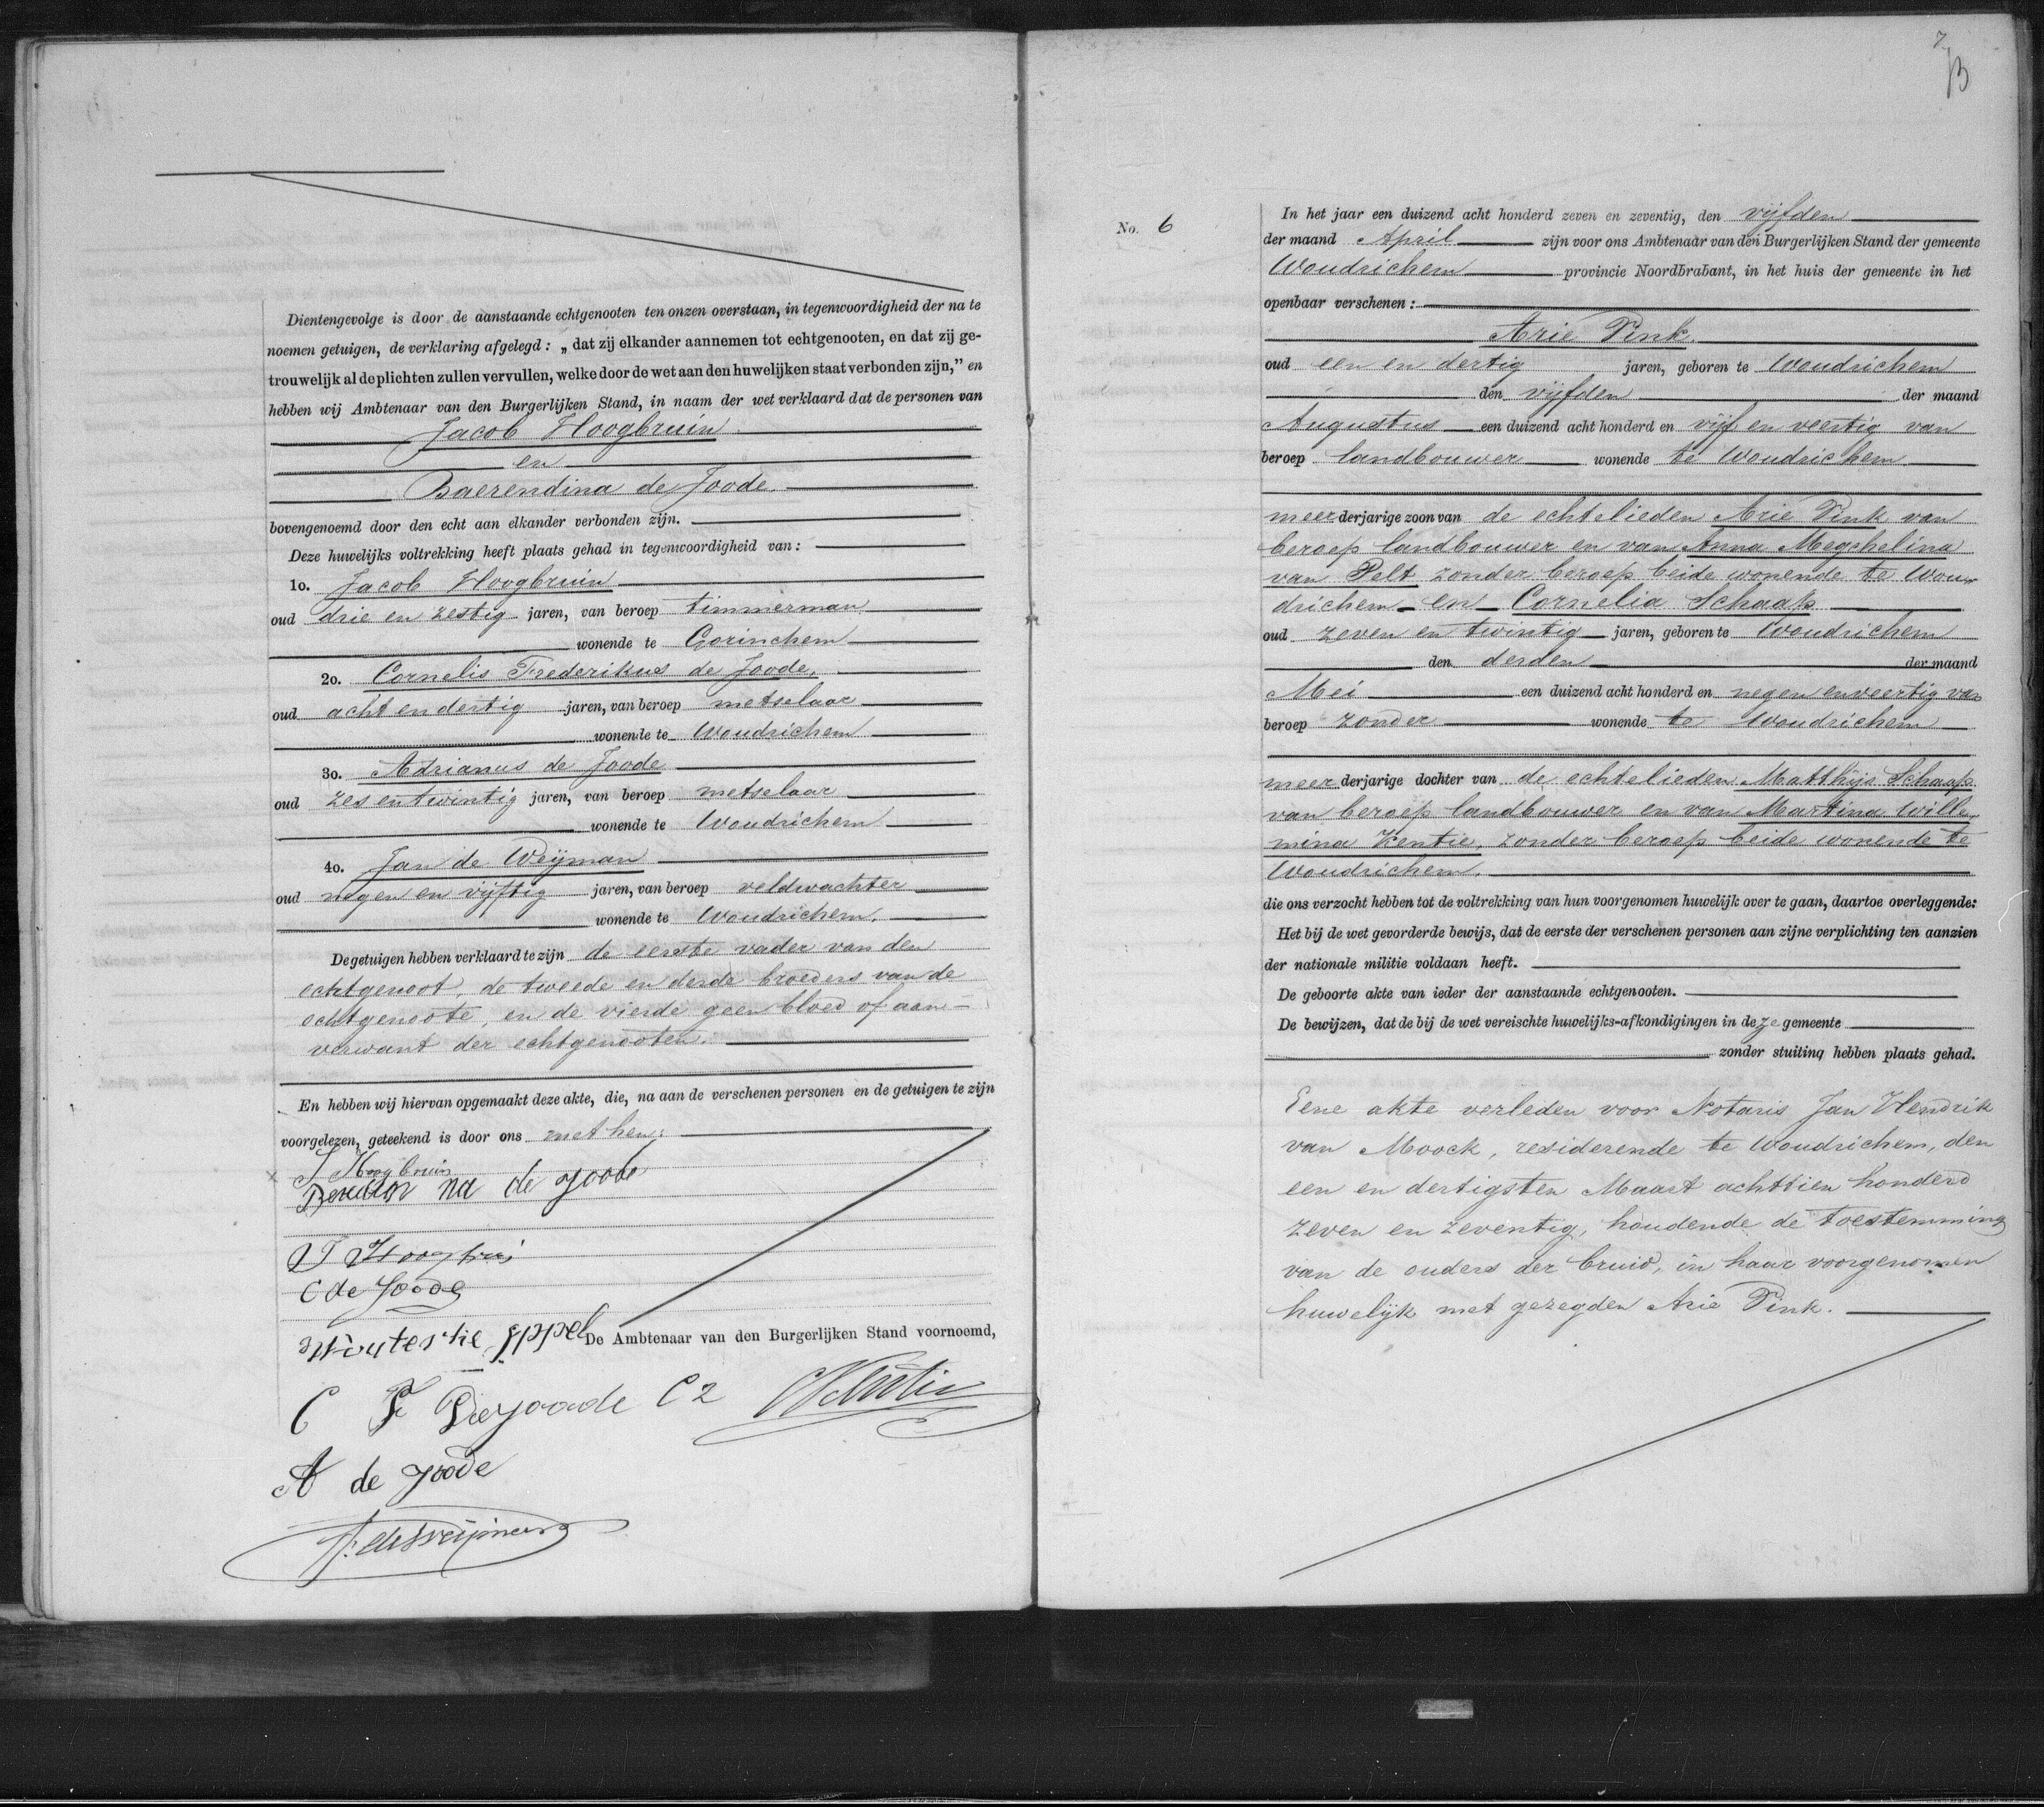 Dientengevolge is door de aanstaande echtgenooten ten onzen overstaan, in tegenwoordigheid der na te
noemen getuigen, de verklaring afgelegd: „dat zij elkander aannemen tot echtgenooten, en dat zij ge-
trouwelijk al de plichten zullen vervullen, welke door de wet aan den huwelijken staat verbonden zijn," en
hebben wij Ambtenaar van den Burgerlijken Stand, in naam der wet verklaard dat de personen van
Jacob Hoogbruin
en
Baerendina de Joode
bovengenoemd door den echt aan elkander verbonden zijn.
Deze huwelijks voltrekking heeft plaats gehad in tegenwoordigheid van:
1o. Jacob Hoogbruin
oud drie en zestig jaren, van beroep timmerman
wonende te Gorinchem
2o. Cornelis Frederikus de Joode,
oud acht en dertig jaren, van beroep metselaar
wonende te Woudrichem
3o. Adrianus de Joode
oud zes en twintig jaren, van beroep metselaar
wonende te Woudrichem
4o. Jan de Weijman
oud negen en vijftig jaren, van beroep veldwachter
wonende te Woudrichem.
De getuigen hebben verklaard te zijn de eerste vader van den
echtgenoot, de tweede en derde broeders van de
echtgenoote, en de vierde geen bloed of aan-
verwant der echtgenooten.
En hebben wij hiervan opgemaakt deze akte, die, na aan de verschenen personen en de getuigen te zijn
voorgelezen, geteekend is door ons met hen.
J Hoogbruin
na de Joode
J Hoogbrui
C de Joode
De Ambtenaar van den Burgerlijken Stand voornoemd,
C F De Joode C 2
A de Joode
J. de Weijman
7
No. 6
In het jaar een duizend acht honderd zeven en zeventig, den vijfden
der maand April zijn voor ons Ambtenaar van den Burgerlijken Stand der gemeente
Woudrichem provincie Noordbrabant, in het huis der gemeente in het
openbaar verschenen:
Arie Pink
oud een en dertig jaren, geboren te Woudrichem
den vijfden der maand
Augustus een duizend acht honderd en vijf en veertig van
beroep landbouwer wonende te Woudrichem
meerderjarige zoon van de echtelieden Arie Pink van
beroep landbouwer en van Anna Megchelina
van Pelt zonder beroep beide wonende te Wou-
drichem en Cornelia Schaap
oud zeven en twintig jaren, geboren te Woudrichem
den derden der maand
Mei een duizend acht honderd en negen en veertig van
beroep zonder wonende te Woudrichem
meerderjarige dochter van de echtelieden Matthijs Schaap
van beroep landbouwer en van Martina Wille,
mina Kentie, zonder beroep beide wonende te
Woudrichem.
die ons verzocht hebben tot de voltrekking van hun voorgenomen huwelijk over te gaan, daartoe overleggende:
Het bij de wet gevorderde bewijs, dat de eerste der verschenen personen aan zijne verplichting ten aanzien
der nationale militie voldaan heeft.
De geboorte akte van ieder der aanstaande echtgenooten.
De bewijzen, dat de bij de wet vereischte huwelijks-afkondigingen in deze gemeente
zonder stuiting hebben plaats gehad.
Eene akte verleden voor Notaris Jan Hendrik
van Moock, residerende te Woudrichem, den
een en dertigsten Maart achttien honderd
zeven en zeventig, houdende de toestemming
van de ouders der bruid, in haar voorgenomen
huwelijk met gezegden Arie Pink.